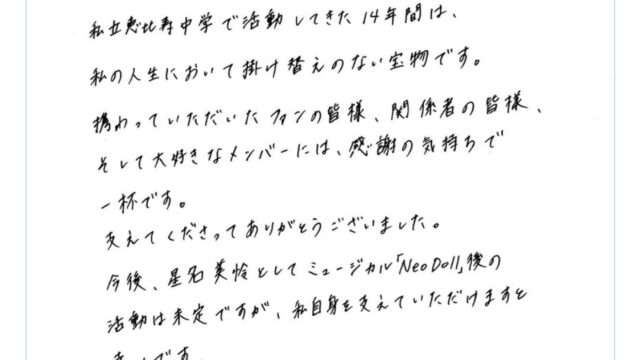 私立恵比寿中学で活動してきた14年間は、
私の人生において掛け替えのない宝物です。
携わっていただいたファンの皆様、関係者の皆様、
そして大好きなメンバーには、感謝の気持ちで
一杯です。
支えてくださってありがとうございました。
今後、星名美怜としてミュージカル「NeoDoll」後の
活動は未定ですが、私自身を支えていただけますと
です。